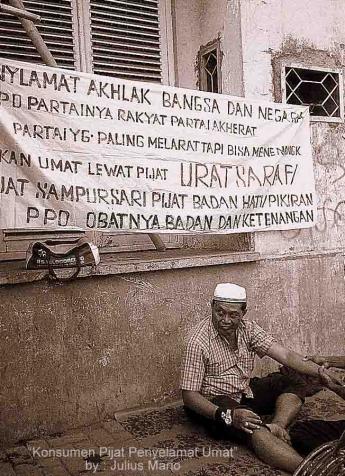 NYLAMAT AKHLAK BANGSA DAN NEGARA
PPD PARTAINYA RAKYAT PARTAI AKHERAT
PARTAI YG. PALING MELARAT TAPI BISA MENE
KAN UMAT LEWAT PIJAT URAT SARAF/
JAT SAMPURSARI PIJAT BADAN HATI/PIKIRAN
PPD OBATNYA BADAN DAN KETENANGAN
"Konsumen Pijat Penyelamat Umat"
by. : Julius Mario